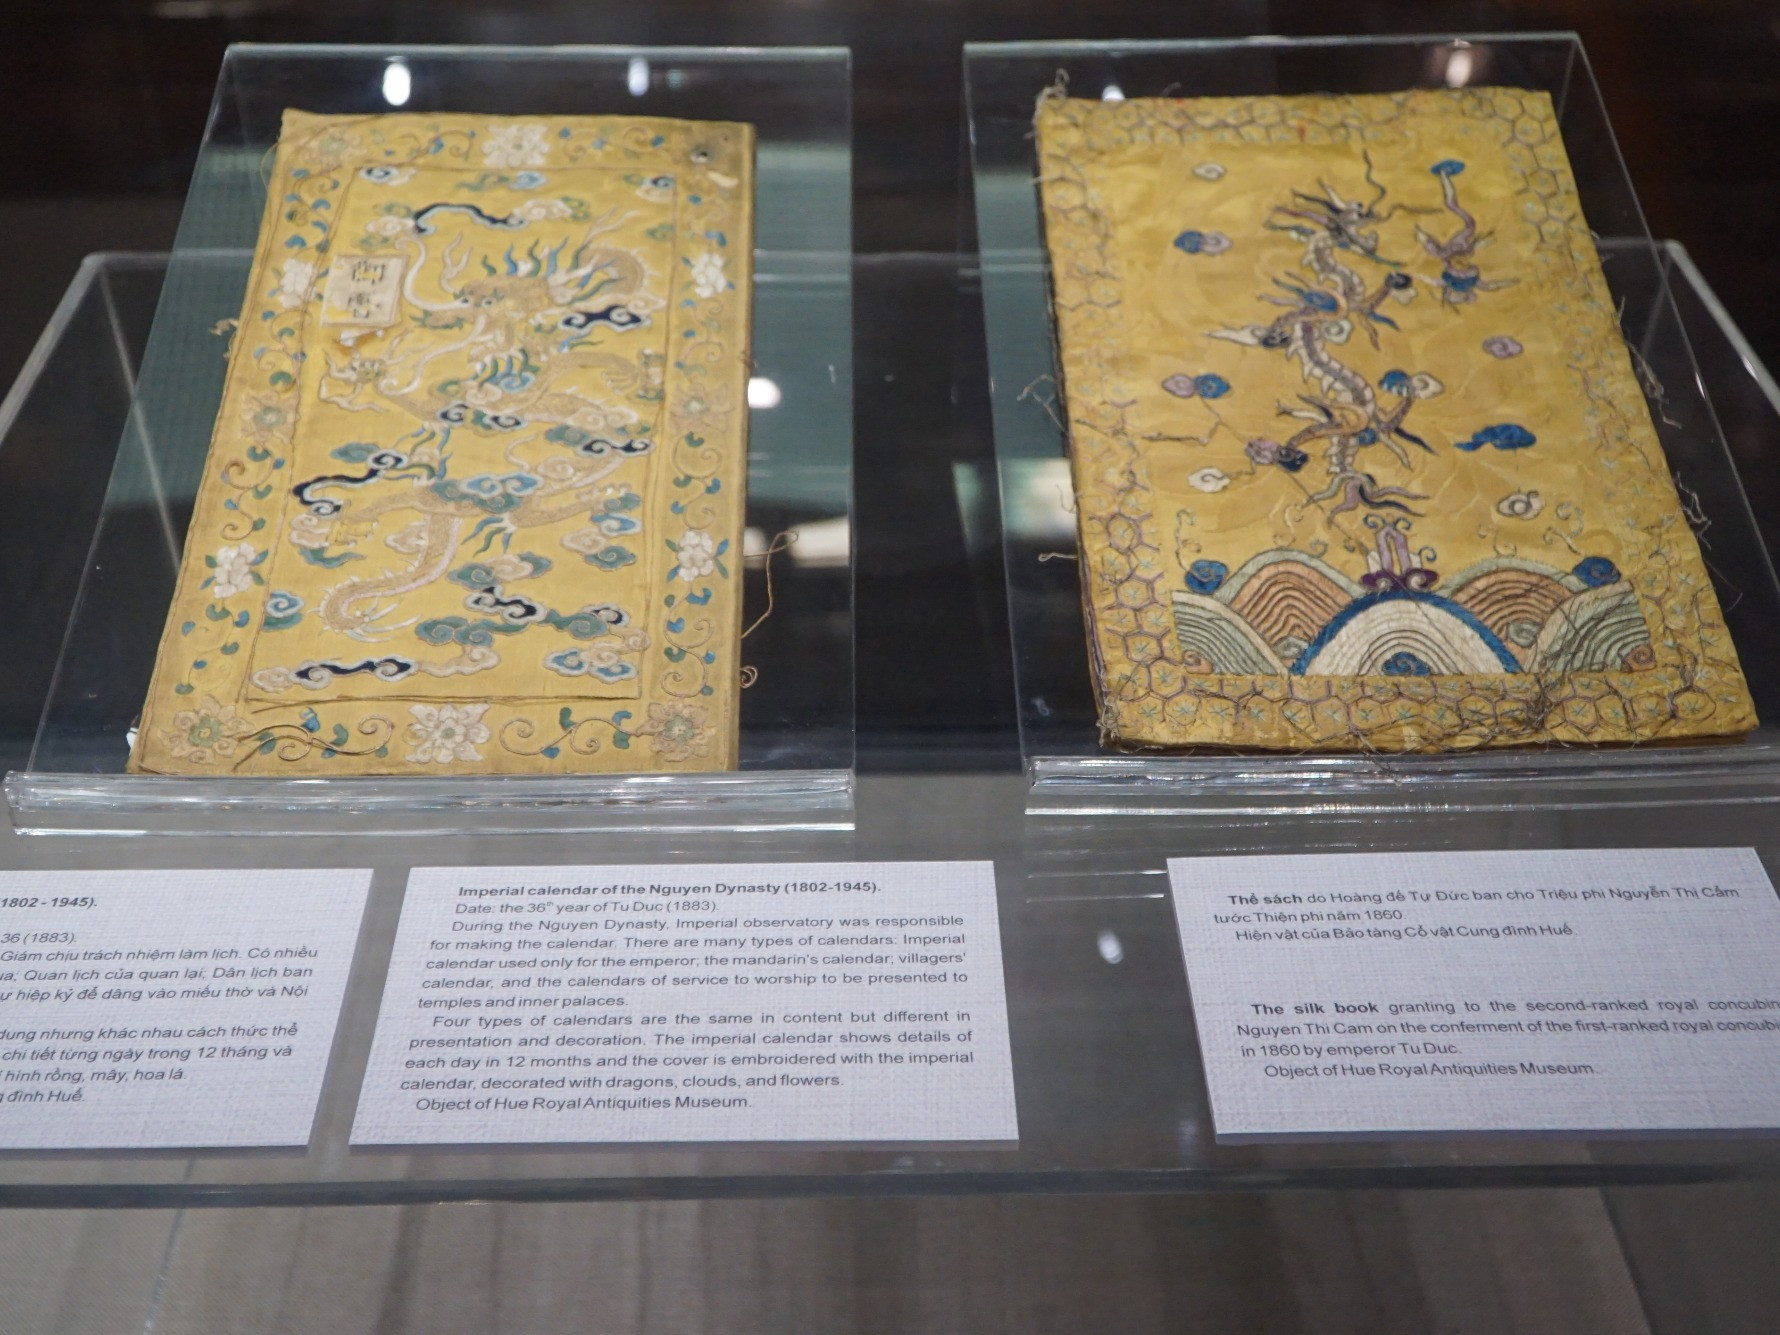 1802 - 1945).
36 (1883).
Giám chịu trách nhiệm làm lịch. Có nhiều
Quan lịch của quan lại; Dân lịch ban
hiệp kỷ để dâng vào miếu thờ và Nội
dung nhưng khác nhau cách thức thể
chi tiết từng ngày trong 12 tháng và
hình rồng, mây, hoa lá.
đình Huế.
Imperial calendar of the Nguyen Dynasty (1802-1945).
Date: the 36th year of Tu Duc (1883).
During the Nguyen Dynasty, Imperial observatory was responsible
for making the calendar. There are many types of calendars: Imperial
calendar used only for the emperor; the mandarin's calendar; villagers'
calendar, and the calendars of service to worship to be presented to
temples and inner palaces.
Four types of calendars are the same in content but different in
presentation and decoration. The imperial calendar shows details of
each day in 12 months and the cover is embroidered with the imperial
calendar, decorated with dragons, clouds, and flowers.
Object of Hue Royal Antiquities Museum.
Thể sách do Hoàng đế Tự Đức ban cho Triệu phi Nguyễn Thị Cẩm
tước Thiện phi năm 1860.
Hiện vật của Bảo tàng Cổ vật Cung đình Huế.
The silk book granting to the second-ranked royal concubin
Nguyen Thi Cam on the conferment of the first-ranked royal concubi
in 1860 by emperor Tu Duc.
Object of Hue Royal Antiquities Museum.